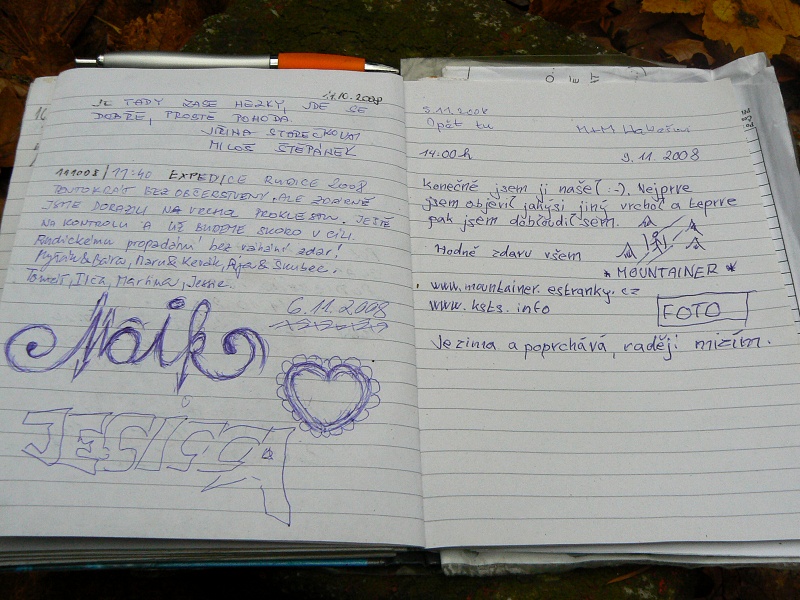 11.10.2008
JE TADY ZASE HEZKY, JDE SE
DOBŘE, PROSTĚ POHODA.
JIŘINA
MILOŠ ŠTĚPÁNEK
111008/ 17:40 EXPEDICE RUDICE 2008
TENTOKRÁT BEZ OBČERSTVENÍ, ALE ZDÁRNĚ
JSME DORAZILI NA VRCHOL PROKLESTU. JEŠTĚ
NA KONTROLU A UŽ BUDEME SKORO V CÍLI.
Rudickému propadání bez váhání zdar!
Tomáš, Ilča, Martina, Jessie.
6.11.2008
Maik
JESICCA
5.11.2008
Opět tu M+M
14:00 h 9.11.2008
Konečně jsem ji našel :-). Nejprve
jsem objevil jakýsi jiný vrchol a teprve
pak jsem dobloudil sem.
Hodně zdaru všem
* MOUNTAINER *
www.mountainer.estranky.cz
www.ksts.info
FOTO
Je zima a poprchává, raději mizím.